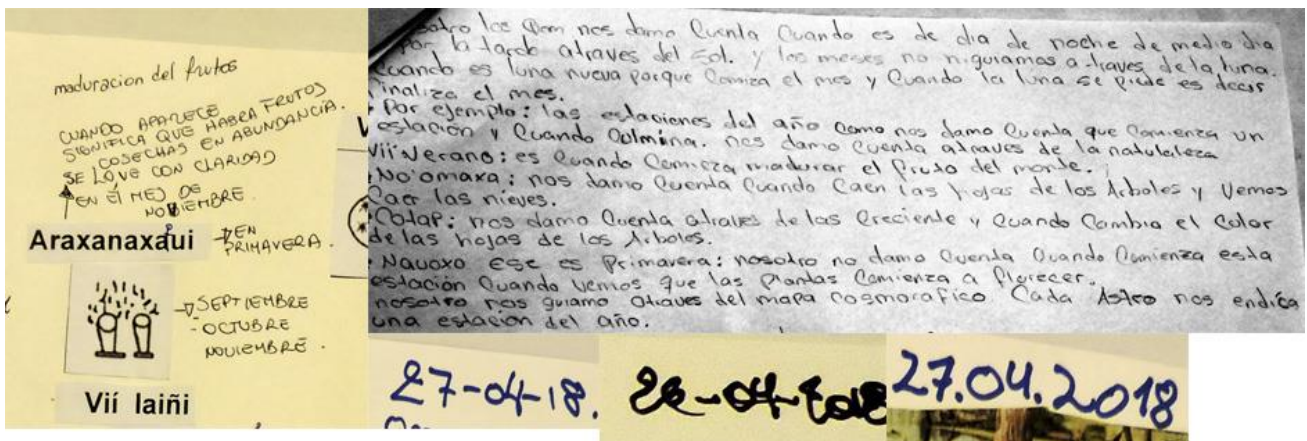 maduracion del frutos
CUANDO APARECE
SIGNIFICA QUE HABRA FRUTOS
COSECHAS EN ABUNDANCIA.
SE LOVE CON CLARIDAD
EN ÉL MES DE
NOVIEMBRE.
Araxanaxaui
EN
PRIMAVERA.
SEPTIEMBRE
-OCTUBRE
NOVIEMBRE.
Víí laiñi
los Qom nos damo Cuenta Cuando es de dia de noche de medio dia
Por la tarde atraves del sol. y los meses no niguiamos a traves de la luna.
Cuando es luna nueva porque Comiza el mes y Cuando la luna se piede es decir
finaliza el mes.
• Por ejemplo: las estaciones del año como nos damo Cuenta que Comienza un
estación y Cuando Culmina. nos damo Cuenta atraves de la
Vii Verano: es Cuando Comieza madurar el fruto del monte.
• No'omaxa: nos damo Cuenta Cuando Caen las hojas de los Arboles y Vemos
Caer las nieves.
• Cotap: nos damo Cuenta atraves de las Creciente y Cuando Cambia el Color
de las hojas de los Arboles.
• Navoxo Ese es Primavera: nosotro no damo Cuenta Cuando Comienza esta
estación Cuando vemos que las Plantas Comienza a florecer.
nosotro nos guiamo atraves del mapa cosmorafico Cada Astro nos endica
una estacion del año.
27-04-18.
26-04-2018
27.04.2018